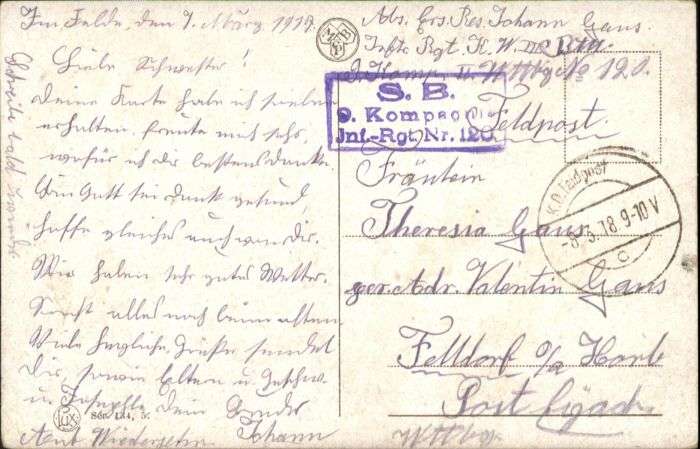 Im Felde, den 7. März 1918.
Liebe Schwester!
Deine Karte habe ich soeben
erhalten. Freute mich sehr,
wofür ich dir bestens danke.
Bin Gott sei Dank gesund,
hoffe gleiches auch von Dir.
Wir haben sehr gutes Wetter.
Sonst alles noch beim alten.
Viele herzliche Grüße sendet
Dir, sowie Eltern u. Geschw.
Dein Bruder
Johann
Auf Wiedersehn
Schreibe bald
Abs. Ers. Res. Johann Gaus.
Inftr. Rgt. K. W.
Wttbg No 120.
S. B.
9. Kompagnie
Inf.-Rgt. Nr. 120
Feldpost.
K.D. Feldpost
-8.3.18 9-10V
c
Fräulein
Theresia Gaus
per Adr. Valentin Gaus
Felldorf O/A Horb
Post Eyach
Wttbg.
Ser. 134, 5.